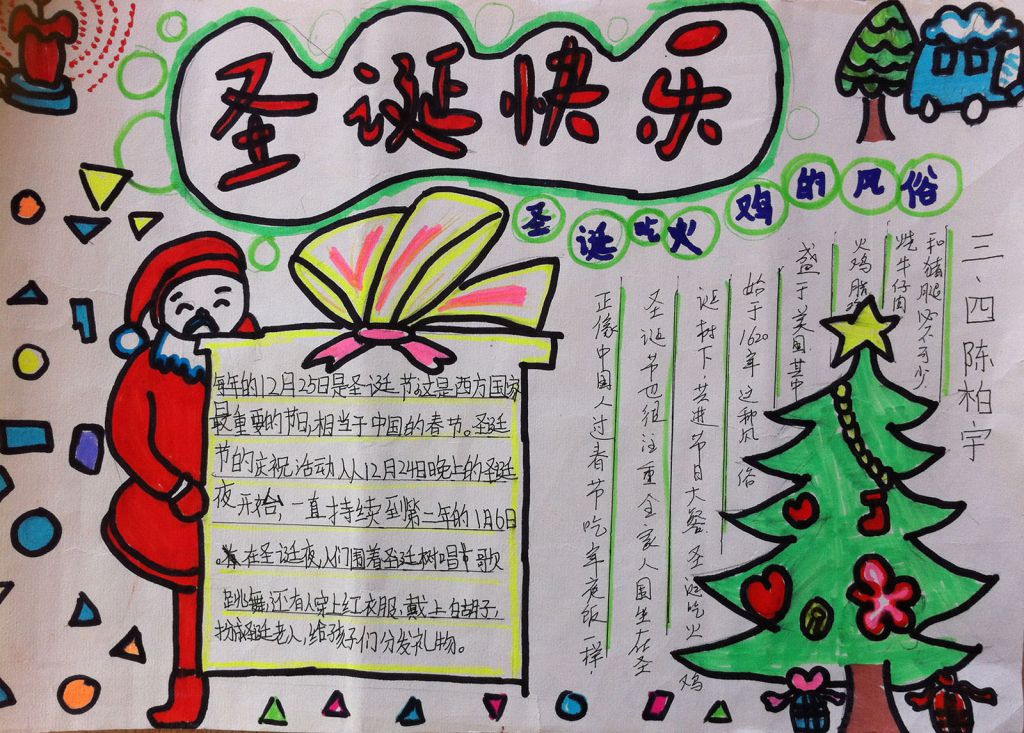 圣诞快乐
圣诞吃火鸡的风俗
三、四 陈柏宇
每年的12月25日是圣诞节。这是西方国家
最重要的节日,相当于中国的春节。圣廷
节的庆祝活动从12月24日晚上的圣廷
夜开始,一直持续到第二年的1月6日
。在圣诞夜,人们围着圣廷树唱歌
跳舞,还有人穿上红衣服,戴上白胡子,
扮成圣廷老人,给孩子们分发礼物。
正像中国人过春节吃年夜饭一样,
圣诞节也很注重全家人围坐在圣
诞树下,共进节日大餐.圣诞吃火鸡
始于1620年.这种风俗
盛于美国.其中
火鸡腿
烧牛仔肉
和猪腿必不可少.